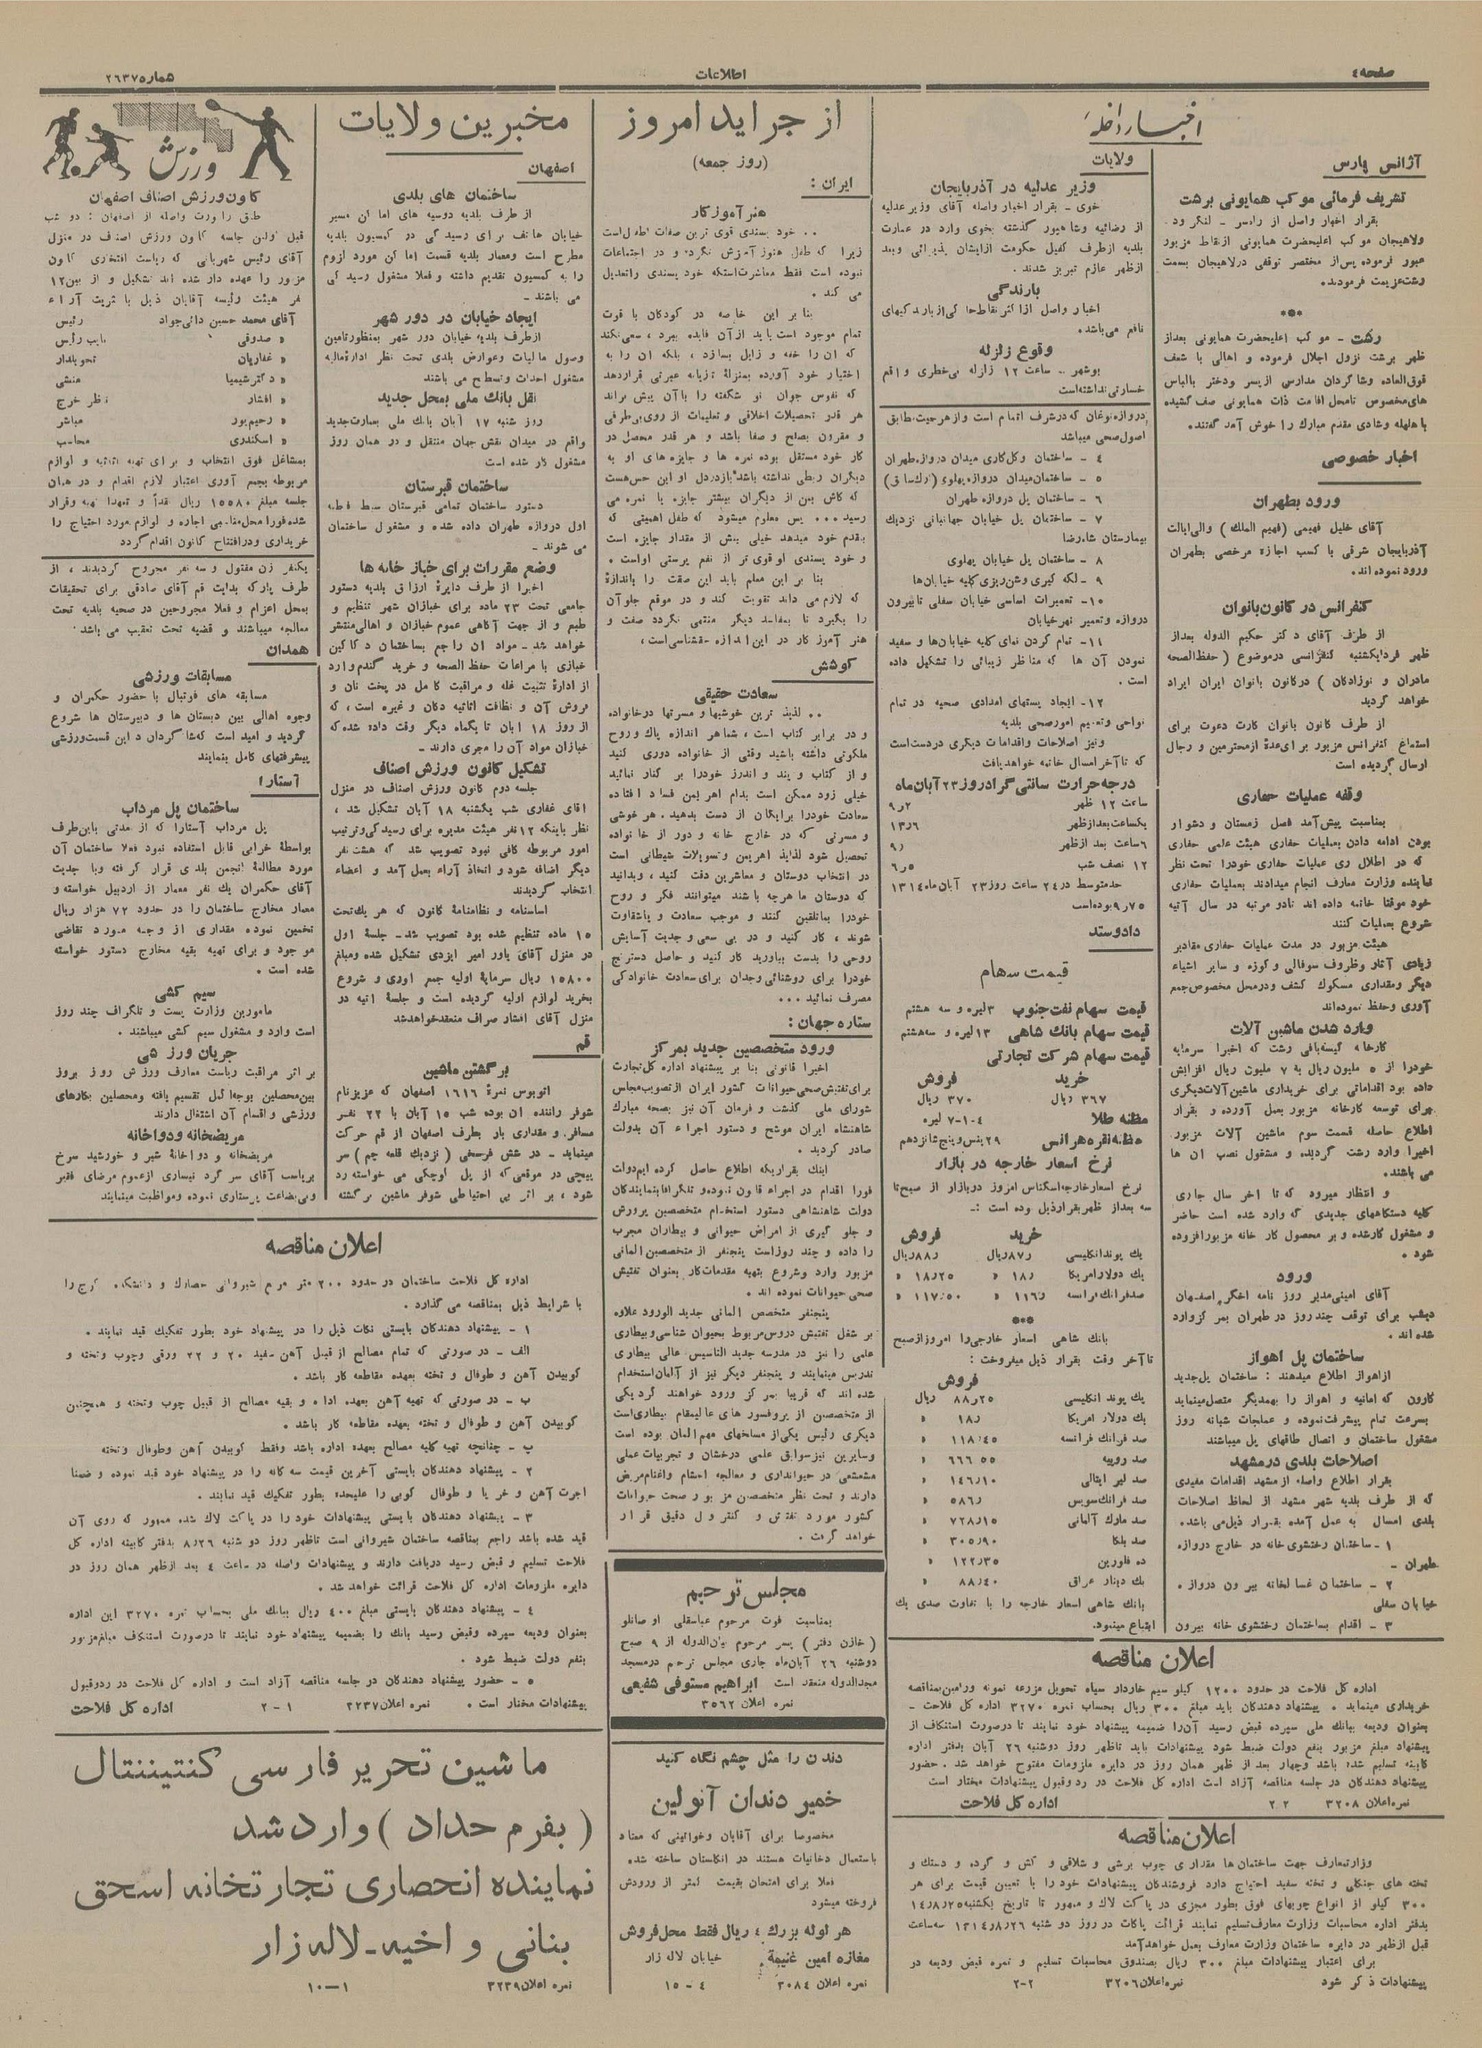 صفحه ٤
اطلاعات
شماره ٢٦٣٧
اخبار داخله
آژانس پارس
تشریف فرمائی موکب همایونی برشت
بقرار اخبار واصل از رامسر - لنگرود
ولاهیجان موکب اعلیحضرت همایونی ازنقاط مزبور
عبور فرموده پس‌از مختصر توقفی درلاهیجان بسمت
رشت‌عزیمت فرمودند.
***
رشت - موکب اعلیحضرت همایونی بعداز
ظهر برشت نزول اجلال فرموده و اهالی با شعف
فوق‌العاده وشاگردان مدارس ازپسر ودختر بالباس
های‌مخصوص تامحل اقامت ذات همایونی صف کشیده
با هلهله وشادی مقدم مبارک را خوش آمد گفتند.
اخبار خصوصی
ورود بطهران
آقای خلیل فهیمی (فهیم الملک) والی‌ایالت
آذربایجان شرقی با کسب اجازه مرخصی بطهران
ورود نموده اند.
کنفرانس در کانون‌بانوان
از طرف آقای دکتر حکیم الدوله بعداز
ظهر فردایکشنبه کنفرانسی درموضوع (حفظ‌الصحه
مادران و نوزادکان) درکانون بانوان ایران ایراد
خواهد گردید
از طرف کانون بانوان کارت دعوت برای
استماع کنفرانس مزبور برای‌عدۀ ازمحترمین و رجال
ارسال گردیده است
وقفه عملیات حفاری
بمناسبت پیش‌آمد فصل زمستان و دشوار
بودن ادامه دادن بعملیات حفاری هیئت علمی حفاری
که در اطلال ری عملیات حفاری خودرا تحت نظر
نماینده وزارت معارف انجام میدادند بعملیات حفاری
خود موقتا خاتمه داده اند تادو مرتبه در سال آتیه
شروع بعملیات کنند
هیئت مزبور در مدت عملیات حفاری مقادیر
زیادی آثار وظروف سوفالی و کوزه و سایر اشیاء
دیگر ومقداری مسکوک کشف ودرمحل مخصوص‌جمع
آوری وحفظ نموده‌اند
وارد شدن ماشین آلات
کارخانه کیسه‌بافی رشت که اخیرا سرمایه
خودرا از ٥ ملیون ریال به ٧ ملیون ریال افزایش
داده بود اقداماتی برای خریداری ماشین‌آلات‌دیگری
برای توسعه کارخانه مزبور بعمل آورده و بقرار
اطلاع حاصله قسمت سوم ماشین آلات مزبور
اخیرا وارد رشت گردیده و مشغول نصب آن ها
می باشند.
و انتظار میرود که تا آخر سال جاری
کلیه دستگاههای جدیدی که وارد شده است حاضر
و مشغول کارشده و بر محصول کار خانه مزبورافزوده
شود.
ورود
آقای امینی‌مدیر روز نامه اخگر اصفهان
دیشب برای توقف چند روز در طهران بمر کزوارد
شده اند.
ساختمان پل اهواز
ازاهواز اطلاع میدهند : ساختمان پل‌جدید
کارون که امانیه و اهواز را بهمدیگر متصل‌مینماید
بسرعت تمام پیشرفت‌نموده و عملجات شبانه روز
مشغول ساختمان و اتصال طاقهای پل میباشند
اصلاحات بلدی درمشهد
بقرار اطلاع واصله از مشهد اقدامات مفیدی
که از طرف بلدیه شهر مشهد از لحاظ اصلاحات
بلدی امسال به عمل آمده بقرار ذیل‌می باشد.
١ - ساختمان رختشوی خانه در خارج دروازه
طهران -
٢ - ساختمان غسالخانه بیرون دروازه
خیابان سفلی
٣ - اقدام بساختمان رختشوی خانه بیرون
ولایات
وزیر عدلیه در آذربایجان
خوی - بقرار اخبار واصله آقای وزیرعدلیه
از رضائیه وشاهپور گذشته بخوی وارد در عمارت
بلدیه ازطرف کفیل حکومت ازایشان پذیرائی وبعد
ازظهر عازم تبریز شدند.
بارندگی
اخبار واصل ازاکثر نقاط‌حاکی‌ازبارندگیهای
نافع می‌باشد.
وقوع زلزله
بوشهر - ساعت ١٢ زلزله بی‌خطری واقع
خسارتی نداشته‌است
دروازه‌نوغان که درشرف اتمام است وازهرحیث‌طابق
اصول‌صحی میباشد
٤ - ساختمان وکل‌کاری میدان دروازه‌طهران
٥ - ساختمان‌میدان دروازه پهلوی (ارک‌سابق)
٦ - ساختمان پل دروازه طهران
٧ - ساختمان پل خیابان جهانبانی نزدیک
بیمارستان شاه‌رضا
٨ - ساختمان پل خیابان پهلوی
٩ - لکه گیری وشن‌ریزی‌کلیه خیابان‌ها
١٠ - تعمیرات اساسی خیابان سفلی تابیرون
دروازه و تعمیر نهرخیابان
١١ - تمام کردن نمای کلیه خیابان‌ها و سفید
نمودن آن ها که مناظر زیبائی را تشکیل داده
است.
١٢ - ایجاد پستهای امدادی صحیه در تمام
نواحی وتعمیم امورصحی بلدیه
ونیز اصلاحات واقدامات دیگری دردست‌است
که تاآخرامسال خاتمه خواهدیافت
درجه حرارت سانتی گراد روز ٢٣ آبان‌ماه
ساعت ١٢ ظهر ٩٫٢
یکساعت‌بعدازظهر ١٣٫٦
٦ساعت بعد ازظهر ٩٫
١٢ نصف شب ٦٫٥
حدمتوسط در٢٤ ساعت روز ٢٣ آبان‌ماه ١٣١٤
٩٫٧٥بوده‌است
دادوستد
قیمت سهام
قیمت سهام نفت‌جنوب ٣لیره و سه هشتم
قیمت سهام بانک شاهی ١٣لیره و سه‌هشتم
قیمت سهام شرکت تجارتی
خرید فروش
٣٦٧ ریال ٣٧٠ ریال
مظنه طلا ٤-١-٧ لیره
مظنه‌نقره‌هرانس ٢٩پنس‌وپنج‌شانزدهم
نرخ اسعار خارجه در بازار
نرخ اسعارخارجه‌اسکناس امروز دربازار از صبح‌تا
سه بعداز ظهربقرارذیل بوده است :-
خرید فروش
یک پوندانگلیسی ٨٧٫ریال ٨٨٫ریال
یک دولارامریکا ١٨٫ » ١٨٫٢٥ »
صدفرانک‌فرانسه ١١٦٫ » ١١٧٫٥٠ »
***
بانک شاهی اسعار خارجی‌را امروزازصبح
تاآخر وقت بقرار ذیل میفروخت :
فروش
یک پوند انگلیسی ٨٨٫٢٥ ریال
یک دولار امریکا ١٨٫ »
صد فرانک فرانسه ١١٨٫٤٥ »
صد روپیه ٦٦٦٫٥٥ »
صد لیر ایتالی ١٤٦٫١٠ »
صد فرانک‌سویس ٥٨٦٫ »
صد مارک آلمانی ٧٢٨٫١٥ »
صد بلگا ٣٠٥٫٩٠ »
ده فلورین ١٢٢٫٣٥ »
یک دینار عراق ٨٨٫٤٠ »
بانک شاهی اسعار خارجه را با تفاوت صدی یک
ابتیاع مینمود.
اعلان مناقصه
اداره کل فلاحت در حدود ١٢٠٠ کیلو سیم خاردار سیاه تحویل مزرعه نمونه ورامین‌بمناقصه
خریداری مینماید. پیشنهاد دهندگان باید مبلغ ٣٠٠ ریال بحساب نمره ٣٢٧٠ اداره کل فلاحت -
بعنوان ودیعه ببانک ملی سپرده قبض رسید آن‌را ضمیمه پیشنهاد خود نمایند تا درصورت استنکاف از
پیشنهاد مبلغ مزبور بنفع دولت ضبط شود پیشنهادات باید تاظهر روز دوشنبه ٢٦ آبان بدفتر اداره
کابینه تسلیم شده باشد وچهار بعد از ظهر همان روز در دایره ملزومات مفتوح خواهد شد. حضور
پیشنهاد دهندگان در جلسه مناقصه آزاد است اداره کل فلاحت در ردوقبول پیشنهادات مختار است
نمره‌اعلان ٣٢٠٨ ٢-٢ اداره کل فلاحت
اعلان مناقصه
وزارتمعارف جهت ساختمان ها مقداری چوب برشی و شلاقی و کش و گرده و دستک و
تخته های جنگلی و تخته سفید احتیاج دارد فروشندگان پیشنهادات خود را با تعیین قیمت برای هر
٣٠٠ کیلو از انواع چوبهای فوق بطور مجزی در پاکت لاک و ممهور تا تاریخ یکشنبه١٤٫٨٫٢٥
بدفتر اداره محاسبات وزارت معارف‌تسلیم نمایند قرائت پاکات در روز دو شنبه ١٣١٤٫٨٫٢٦ سه‌ساعت
قبل ازظهر در دایره ساختمان وزارت معارف بعمل خواهدآمد
برای اعتبار پیشنهادات مبلغ ٣٠٠ ریال بصندوق محاسبات تسلیم و نمره قبض ودیعه در
پیشنهادات ذکر شود نمره‌اعلان ٣٢٠٦ ٢-٢
از جراید امروز
(روز جمعه)
ایران :
هنرآموزگار
.. خود پسندی قوی ترین صفات اطفال‌است
زیرا که طفل هنوز آموزش نگرفته و در اجتماعات
نبوده است فقط معاشرت‌است‌که خود پسندی راتعدیل
می کند.
بنا بر این خاصه در کودکان با قوت
تمام موجود است باید ازآن فایده ببرد ، سعی‌نکند
که آن را خفه و زایل بسازد ، بلکه آن را به
اختیار خود آورده بمنزلۀ تازیانه عبرتی قراردهد
که نفوس جوان نو شکفته را باآن پیش براند
هر قدر تحصیلات اخلاقی و تعلیمات از روی بی‌طرفی
و مقرون بصلح و صفا باشد و هر قدر محصل در
کار خود مستقل بوده نمره ها و جایزه های او به
دیگران ربطی نداشته باشد بازدردل او این حس‌هست
که کاش من از دیگران بیشتر جایزه یا نمره می
رسید... پس معلوم میشود که طفل اهمیتی که
بتقدم خود میدهد خیلی بیش از مقدار جایزه است
و خود پسندی او قوی تر از نفع پرستی اواست.
بنا بر این معلم باید این صفت را باندازۀ
که لازم می داند تقویت کند و در موقع جلوآن
را بگیرد تا بمفاسد دیگر منتهی نگردد صفت و
هنر آموز کار در این‌اندازه حقشناسی‌است ،
کوشش
سعادت حقیقی
.. لذیذ ترین خوشیها و مسرتها درخانواده
و در برابر کتاب است ، شماهر اندازه پاک و روح
ملکوتی داشته باشید وقتی از خانواده دوری کنید
و از کتاب و پند و اندرز خودرا بر کنار نمائید
خیلی زود ممکن است بدام اهریمن فساد افتاده
سعادت خودرا برایگان از دست بدهید. هرخوشی
و مسرتی که در خارج خانه و دور از خانواده
تحصیل شود لذاید اهریمن و تسویلات شیطانی است
در انتخاب دوستان و معاشرین دقت کنید ، وبدانید
که دوستان ما هرچه باشند میتوانند فکر و روح
خودرا بماتلقین کنند و موجب سعادت و یاشقاوت
شوند ، کار کنید و در پی سعی و جدیت آسایش
روحی را بدست بیاورید کار کنید و حاصل دسترنج
خودرا برای روشنائی وجدان برای سعادت خانوادگی
مصرف نمائید...
ستاره جهان :
ورود متخصصین جدید بمرکز
اخیرا قانونی بنا بر پیشنهاد اداره کل‌تجارت
برای‌تفتیش‌صحی‌حیوانات کشور ایران ازتصویب‌مجلس
شورای ملی گذشت و فرمان آن نیز بصحه مبارک
شاهنشاه ایران موشح و دستور اجراء آن بدولت
صادر گردید.
اینک بقراریکه اطلاع حاصل کرده ایم‌دولت
فورا اقدام در اجراء قانون نموده‌و تلگرافابنمایندگان
دولت شاهنشاهی دستور استخدام متخصصین پرورش
و جلو گیری از امراض حیوانی و بیطاران مجرب
را داده و چند روزاست پنجنفر از متخصصین‌المانی
مزبور وارد وشروع بتهیه مقدمات‌کار بعنوان تفتیش
صحی حیوانات نموده اند.
پنجنفر متخصص المانی جدید الورود علاوه
بر شغل تفتیش دروس‌مربوط بحیوان شناسی‌وبیطاری
علمی را نیز در مدرسه جدید التاسیس عالی بیطاری
تدریس مینمایند و پنجنفر دیگر نیز از آلمان‌استخدام
شده اند که قریبا بمر کز ورود خواهند کردیکی
از متخصصین از پروفسور های عالیمقام بیطاری‌است
دیگری رئیس یکی‌از مسلخهای مهم‌المان بوده است
وسایرین نیزسوابق علمی درخشان و تجربیات عملی
مشعشعی در حیوانداری و معالجه احشام واغنام‌مریض
دارند و تحت نظر متخصصین مزبور صحت حیوانات
کشور مورد تفتیش و کنترول دقیق قرار
خواهد گرفت.
مجلس ترحیم
بمناسبت فوت مرحوم عباسقلی اوصانلو
(خازن دفتر) پسر مرحوم بیان‌الدوله از ٩ صبح
دوشنبه ٢٦ آبان‌ماه جاری مجلس ترحیم درمسجد
مجدالدوله منعقد است ابراهیم مستوفی شفیعی
نمره اعلان ٣٥٦٢
دندن را مثل چشم نگاه کنید
خمیر دندان آنولین
مخصوصا برای آقایان وخوانینی که معتاد
باستعمال دخانیات هستند در انگلستان ساخته شده
فعلا برای امتحان بقیمت کمتر از ورودش
فروخته میشود
هر لوله بزرک ٤ ریال فقط محل‌فروش
مغازه امین غنیمة خیابان لاله زار
نمره اعلان ٣٠٨٤ ٤ - ١٥
مخبرین ولایات
اصفهان
ساختمان های بلدی
از طرف بلدیه دوسیه های اماکن مسیر
خیابان هاتف برای رسیدگی در کمسیون بلدیه
مطرح است ومعمار بلدیه قسمت اماکن مورد لزوم
را به کمسیون تقدیم داشته و فعلا مشغول رسیدگی
می باشند -
ایجاد خیابان در دور شهر
ازطرف بلدیه خیابان دور شهر بمنظورتامین
وصول مالیات وعوارض بلدی تحت نظر اداره‌مالیه
مشغول احداث وتسطیح می باشند
نقل بانک ملی بمحل جدید
روز شنبه ١٧ آبان بانک ملی بعمارت‌جدید
واقع در میدان نقش جهان منتقل و در همان روز
مشغول کار شده است
ساختمان قبرستان
دستور ساختمان تمامی قبرستان سط فطه
اول دروازه طهران داده شده و مشغول ساختمان
می شوند -
وضع مقررات برای خباز خانه ها
اخیرا از طرف دایرۀ ارزاق بلدیه دستور
جامعی تحت ٢٣ ماده برای خبازان شهر تنظیم و
طبع و از جهت آگاهی عموم خبازان و اهالی‌منتشر
خواهد شد - مواد آن راجع بساختمان دکاکین
خبازی با مراعات حفظ الصحه و خرید گندم‌وارد
از ادارۀ تثبیت غله و مراقبت کامل در پخت نان و
فروش آن و نظافت اثاثیه دکان و غیره است ، که
از روز ١٨ آبان تا یکماه دیگر وقت داده شده که
خبازان مواد آن را مجری دارند -
تشکیل کانون ورزش اصناف
جلسه دوم کانون ورزش اصناف در منزل
آقای غفاری شب یکشنبه ١٨ آبان تشکیل شد ،
نظر باینکه ١٢ نفر هیئت مدیره برای رسیدگی‌وترتیب
امور مربوطه کافی نبود تصویب شد که هشت‌نفر
دیگر اضافه شود و اتخاذ آراء بعمل آمد و اعضاء
انتخاب گردیدند
اساسنامه و نظامنامۀ کانون که هر یک‌تحت
١٥ ماده تنظیم شده بود تصویب شد - جلسۀ اول
در منزل آقای یاور امیر ایزدی تشکیل شده ومبلغ
١٥٨٠٠ ریال سرمایۀ اولیه جمع آوری و شروع
بخرید لوازم اولیه گردیده است و جلسۀ آتیه در
منزل آقای افشار صراف منعقدخواهدشد
قم
برگشتن ماشین
اتوبوس نمرۀ ١٦١٦ اصفهان که عزیزنام
شوفر راننده آن بوده شب ١٥ آبان با ٢٢ نفر
مسافر و مقداری بار بطرف اصفهان از قم حرکت
مینماید - در شش فرسخی (نزدیک قلعه چم) سر
پیچی در موقعی‌که از پل کوچکی می خواسته رد
شود ، بر اثر بی احتیاطی شوفر ماشین برگشته
ورزش
کانون ورزش اصناف اصفهان
طبق راپورت واصله از اصفهان : دو شب
قبل اولین جلسه کانون ورزش اصناف در منزل
آقای رئیس شهربانی که ریاست افتخاری کانون
مزبور را عهده دار شده اند تشکیل و از بین١٢
نفر هیئت رئیسه آقایان ذیل با کثریت آراء
آقای محمد حسین دائی‌جواد رئیس
» صدوقی نایب رئیس
» غفاریان تحویلدار
» دکترشیمیا منشی
» افشار ناظر خرج
» رحیم‌پور مباشر
» اسکندری محاسب
بمشاغل فوق انتخاب و برای تهیه اثاثیه و لوازم
مربوطه بجمع آوری اعتبار لازم اقدام و در همان
جلسه مبلغ ١٥٥٨٠ ریال نقداً و تعهدا تهیه وقرار
شده‌فورا محل‌مناسبی اجاره و لوازم مورد احتیاج را
خریداری ودرافتتاح کانون اقدام گردد
یکنفر زن مقتول و سه نفر مجروح گردیدند ، از
طرف پارکه بدایت قم آقای صادقی برای تحقیقات
بمحل اعزام و فعلا مجروحین در صحیه بلدیه تحت
معالجه میباشند و قضیه تحت تعقیب می باشد.
همدان
مسابقات ورزشی
مسابقه های فوتبال با حضور حکمران و
وجوه اهالی بین دبستان ها و دبیرستان ها شروع
گردید و امید است که‌شاگردان در این قسمت‌ورزشی
پیشرفتهای کامل بنمایند
آستارا
ساختمان پل مرداب
پل مرداب آستارا که از مدتی باین‌طرف
بواسطۀ خرابی قابل استفاده نبود فعلا ساختمان آن
مورد مطالعۀ انجمن بلدی قرار گرفته وبا جدیت
آقای حکمران یک نفر معمار از اردبیل خواسته و
معمار مخارج ساختمان را در حدود ٧٢ هزار ریال
تخمین نموده مقداری از وجه مورد تقاضی
موجود و برای تهیه بقیه مخارج دستور خواسته
شده است.
سیم کشی
مامورین وزارت پست و تلگراف چند روز
است وارد و مشغول سیم کشی میباشند.
جریان ورزشی
بر اثر مراقبت ریاست معارف ورزش روز بروز
بین‌محصلین بوجه‌اکمل تقسیم یافته ومحصلین بکارهای
ورزشی و اقسام آن اشتغال دارند
مریضخانه ودواخانه
مریضخانه و دواخانۀ شیر و خورشید سرخ
بریاست آقای سرگرد تیساری ازعموم مرضای فقیر
وبی‌بضاعت پرستاری نموده ومواظبت مینمایند
اعلان مناقصه
اداره کل فلاحت ساختمان در حدود ٢٠٠ متر مربع شیروانی حصارک و دانشکده کرج را
با شرایط ذیل بمناقصه می گذارد.
١ - پیشنهاد دهندگان بایستی نکات ذیل را در پیشنهاد خود بطور تفکیک قید نمایند.
الف - در صورتی که تمام مصالح از قبیل آهن سفید ٢٠ و ٢٢ ورقی وچوب وتخته و
کوبیدن آهن و طوفال و تخته بعهده مقاطعه کار باشد.
ب - در صورتی که تهیه آهن بعهده اداره و بقیه مصالح از قبیل چوب وتخته و همچنین
کوبیدن آهن و طوفال و تخته بعهده مقاطعه کار باشد.
پ - چنانچه تهیه کلیه مصالح بعهده اداره باشد وفقط کوبیدن آهن وطوفال وتخته
٢ - پیشنهاد دهندگان بایستی آخرین قیمت سه گانه را در پیشنهاد خود قید نموده و ضمنا
اجرت آهن و خرپا و طوفال کوبی را علیحده بطور تفکیک قید نمایند.
٣ - پیشنهاد دهندگان بایستی پیشنهادات خود را در پاکت لاک شده ممهور که روی آن
قید شده باشد راجع بمناقصه ساختمان شیروانی است تاظهر روز دو شنبه ٨٫٢٦ بدفتر کابینه اداره کل
فلاحت تسلیم و قبض رسید دریافت دارند و پیشنهادات واصله در ساعت ٤ بعد ازظهر همان روز در
دایره ملزومات اداره کل فلاحت قرائت خواهد شد.
٤ - پیشنهاد دهندگان بایستی مبلغ ٤٠٠ ریال ببانک ملی بحساب نمره ٣٢٧٠ این اداره
بعنوان ودیعه سپرده وقبض رسید بانک را بضمیمه پیشنهاد خود نمایند تا درصورت استنکاف مبلغ‌مزبور
بنفع دولت ضبط شود.
٥ - حضور پیشنهاد دهندگان در جلسه مناقصه آزاد است و اداره کل فلاحت در ردوقبول
پیشنهادات مختار است. نمره اعلان٣٢٣٧ ١-٢ اداره کل فلاحت
ماشین تحریر فارسی کنتیننتال
(بفرم حداد) وارد شد
نماینده انحصاری تجارتخانه اسحق
بنانی و اخیه - لاله زار
نمره اعلان٣٢٣٩ ١-١٠